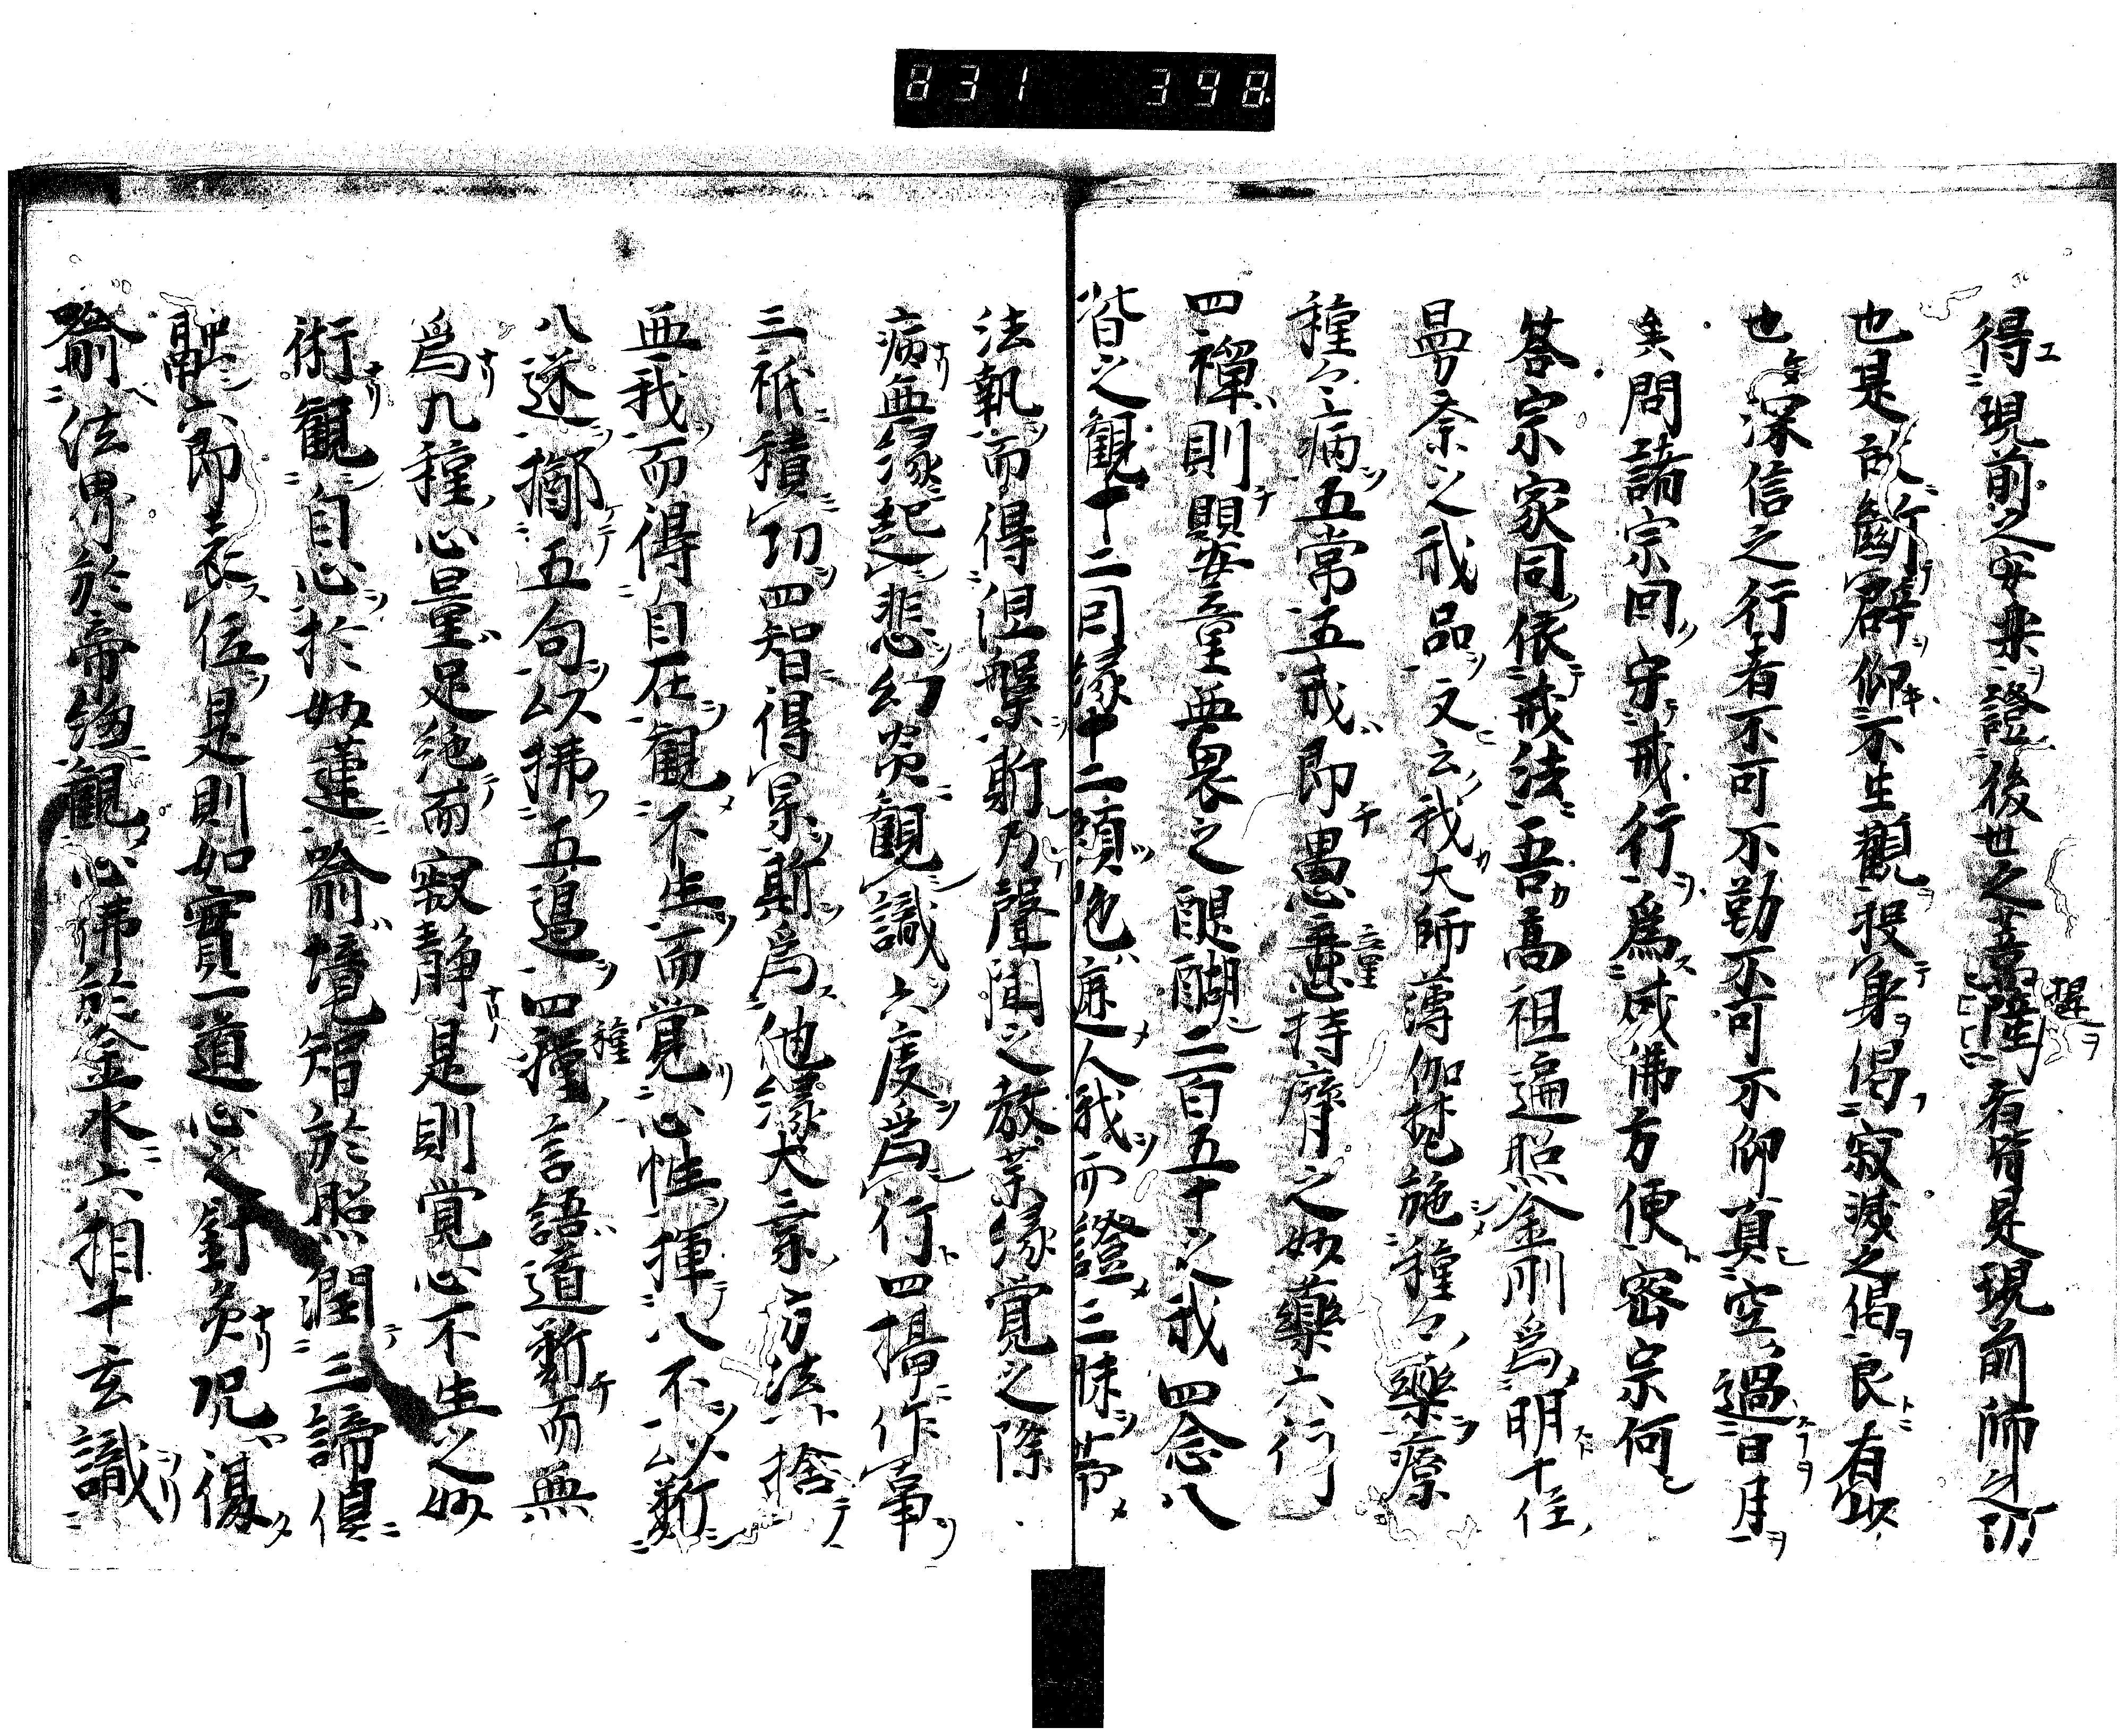 831 398
得現前之安楽證後世之菩薩者皆是現前師之功
也是故断臂仰不生觀投身偈寂滅之偈良有以
也深信之行者不可不勤不可不仰真空過日月
矣問諸宗同守戒行為成佛方便密宗何
答宗家同依戒法吾高祖遍照金剛為明十住
曼荼之戒品文云我大師薄伽梵施種々藥療
種々病五常五戒即愚童持齋之妙藥六行
四禪則嬰童無畏之醍醐二百五十之戒四念八
背之觀十二因縁十二頭陀遮人我而證三昧帯
法執而得涅槃斯乃聲聞之教業縁覚之除
病無縁起悲幻炎觀識六度為行四攝作事
三祇積功四智得果斯為他縁大乗方法捨
無我而得自在觀不生而覚心性揮八不以断
八迷擲五句以拂五邊四種言語道断而無
為九種心量足絶而寂静是則覚心不生之妙
術觀自心於妙蓮喩境智於照潤三諦俱
融六即表位是則如實一道心之針灸呪優
喩法界於帝網觀心佛於金水六相十玄識